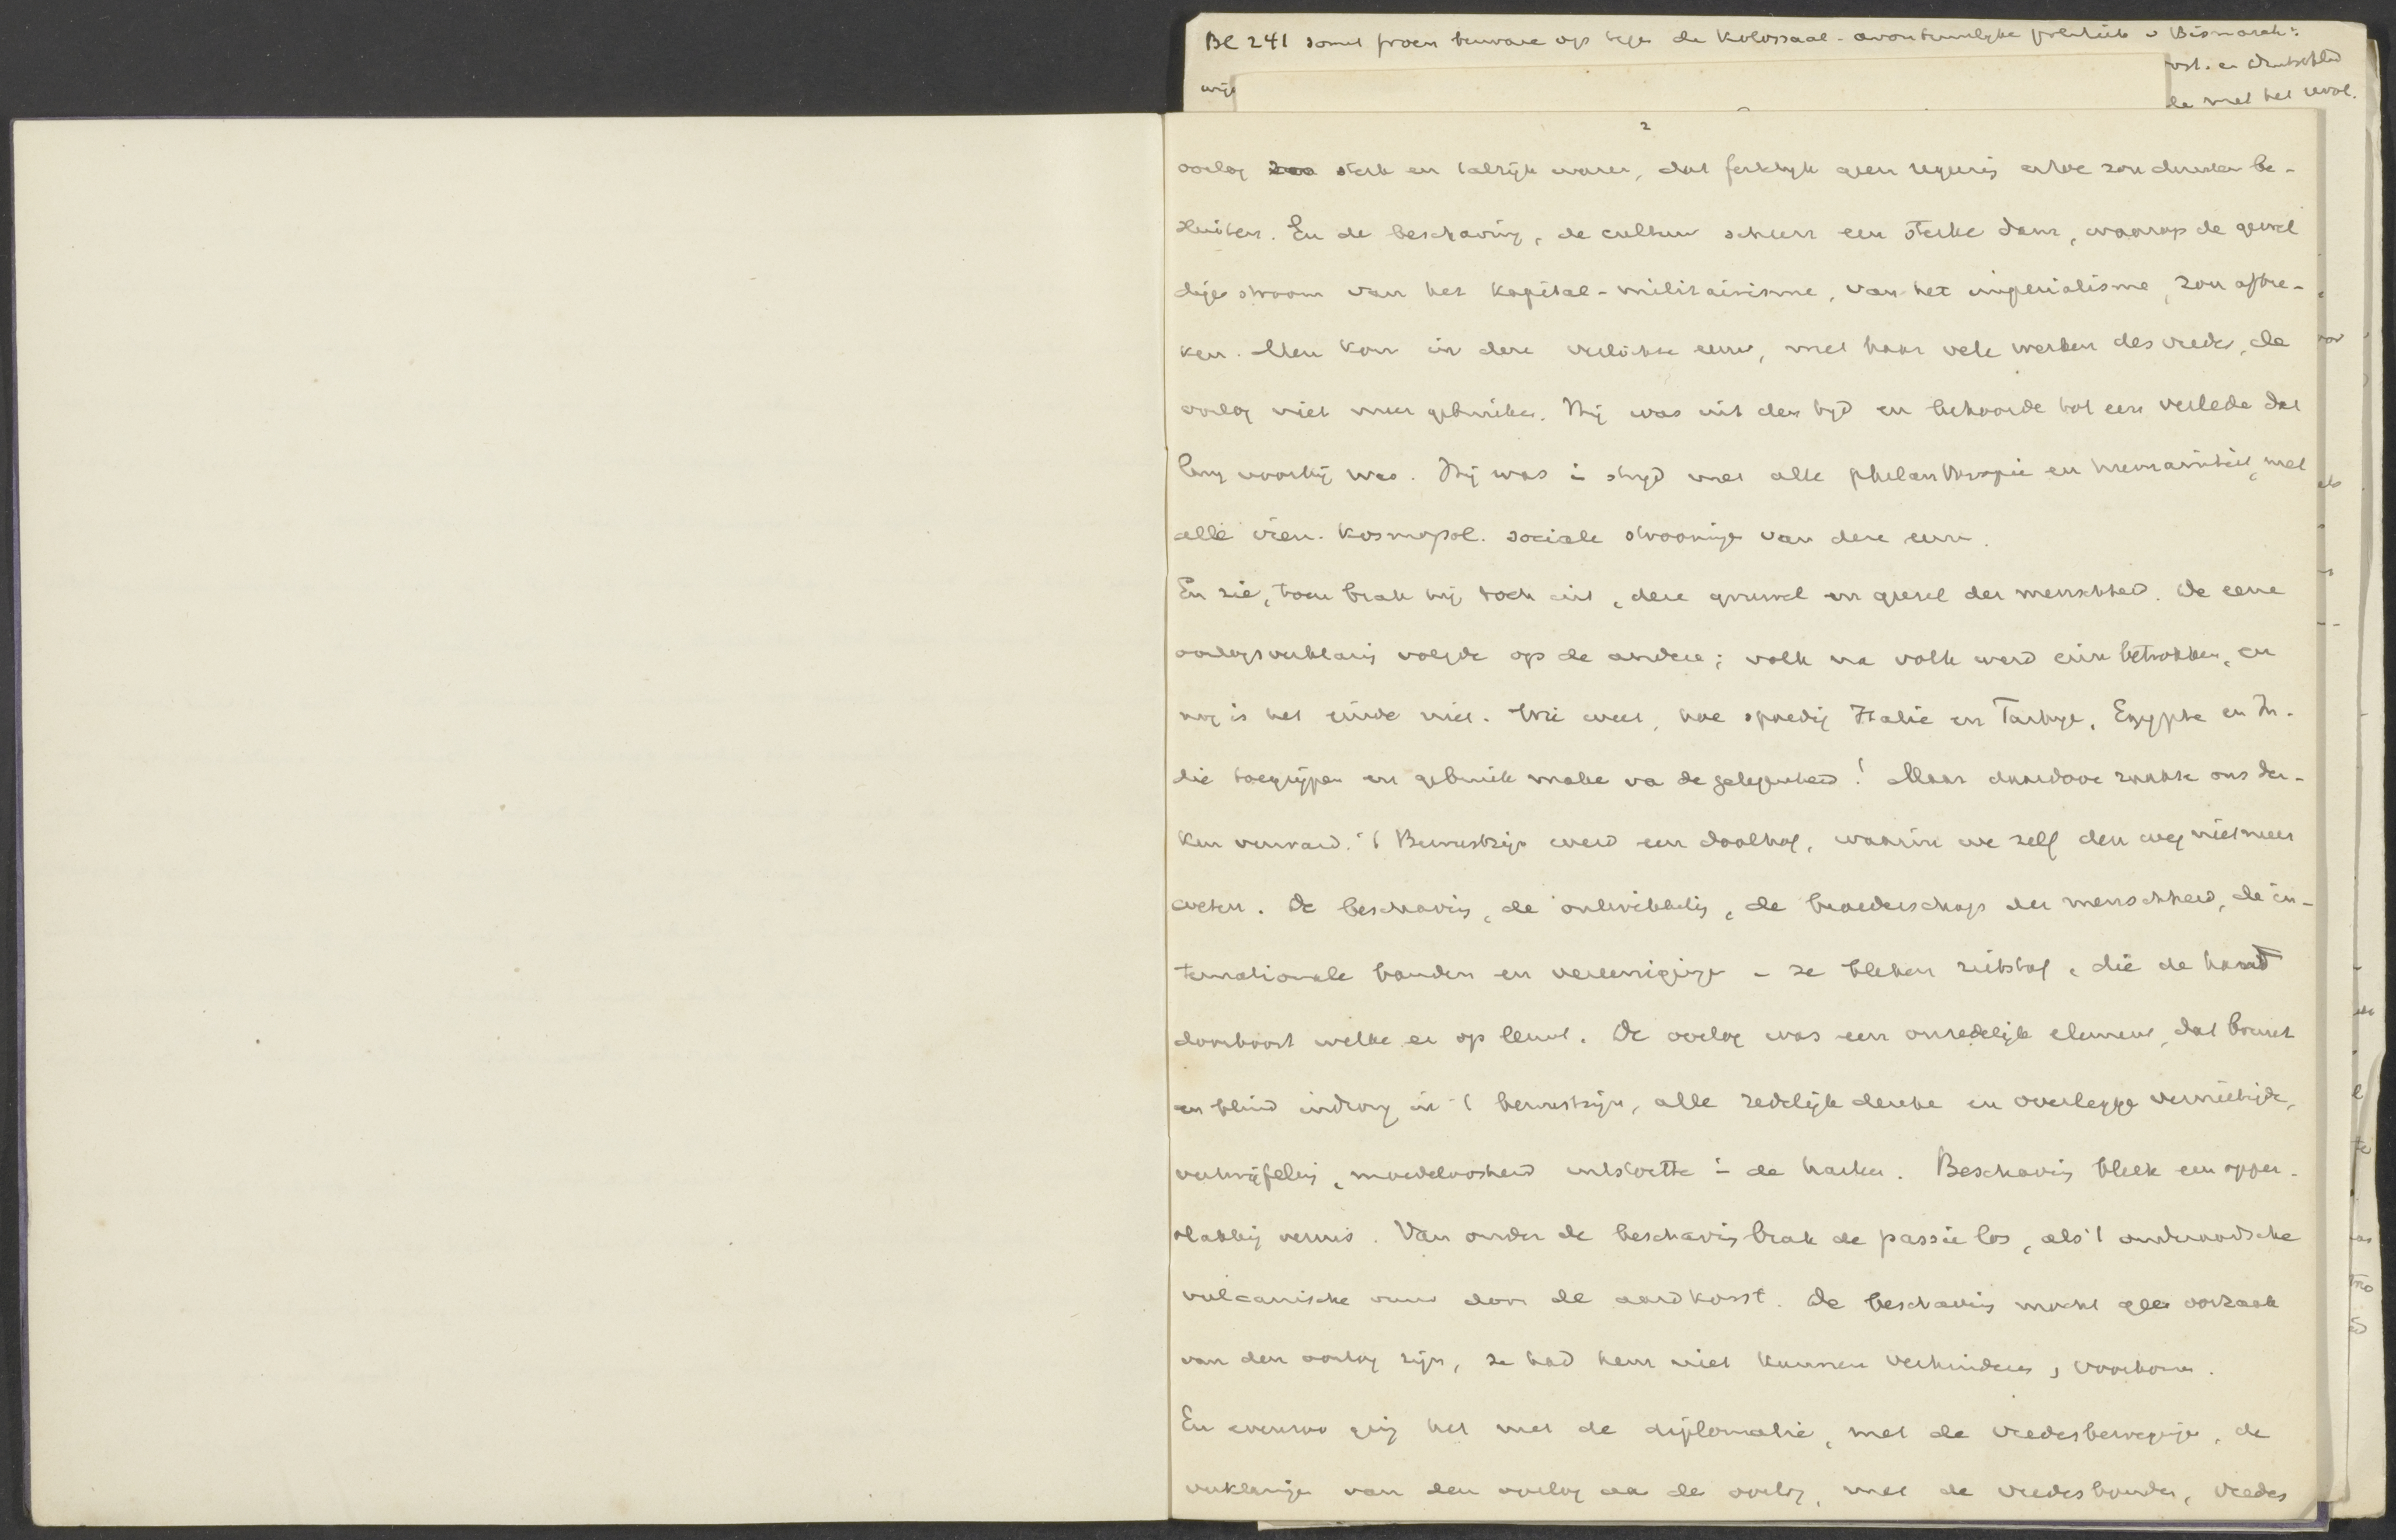 Bl 241 somt bezware op tege de Kolossaal-avontuurlyke politiek v Bismarck:
ost. en Deutschld
de met het
2
oorlog zoo sterk en talrijk waren, dat feitelijk geen regering ertoe zou durven be-
sluiten. En de beschaving, de cultuur scheen een sterke dam, waarop de gewel
dige stroom van het kapital-militairisme, van het imperialisme, zou afbre-
ken. Men kon in deze verlichte eeuw, met haar vele werken des vredes, de
oorlog niet meer gebruiken. Hij was uit den tyd en behoorde tot een verlede dat
lang voorbij was. Hij was i stryd met alle philanthropie en humaniteit, met
alle kosmopol. sociale stroominge van deze eeuw.
En zie, toen brak hij toch uit, deze gruwel en geesel der menschheid. De eene
oorlogsverklaring volgde op de andere; volk na volk werd erin betrokken, en
nog is het einde niet. Wie weet, hoe spoedig Italië en Turkye, Egypte en In-
dië toegrijpen en gebruik make va de gelegenheid! Maar daardoor raakte ons den-
ken verward. 't Bewustzijn werd een doolhof, waarin we zelf den weg niet meer
weten. De beschaving, de ontwikkeling, de broederschap der menschheid, de in-
ternationale banden en vereenigingen - ze bleken rietstaf, die de hand
doorboort welke er op leunt. De oorlog was een onredelijk element, dat bruut
en blind indrong in 't bewustzijn, alle redelijk denke en overlegge vernietigde,
vertwijfeling, moedeloosheid uitstortte i de harten. Beschaving bleek een opper-
vlakkig vernis. Van onder de beschaving brak de passie los, als 't onderaardsche
vulcanische vuur door de aardkorst. De beschaving mocht geen oorzaak
van den oorlog zijn, ze had hem niet kunnen verhinderen, voorkomen.
En evenzoo ging het met de diplomatie, met de vredesbewegingen, de
verklaringen van den oorlog aa de oorlog, met de vredesbonden, vredes